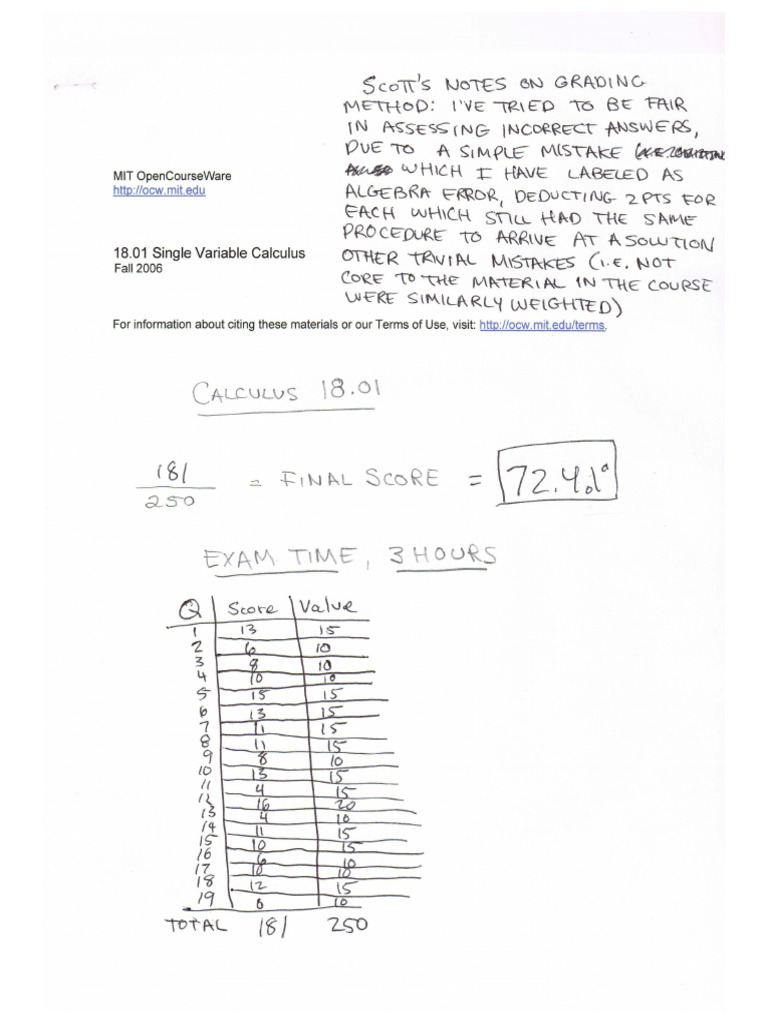 SCOTT'S NOTES ON GRADING
METHOD: I'VE TRIED TO BE FAIR
IN ASSESSING INCORRECT ANSWERS,
DUE TO A SIMPLE MISTAKE
WHICH I HAVE LABELED AS
ALGEBRA ERROR, DEDUCTING 2 PTS FOR
EACH WHICH STILL HAD THE SAME
PROCEDURE TO ARRIVE AT A SOLUTION
OTHER TRIVIAL MISTAKES (I.E. NOT
CORE TO THE MATERIAL IN THE COURSE
WERE SIMILARLY WEIGHTED)
MIT OpenCourseWare
http://ocw.mit.edu
18.01 Single Variable Calculus
Fall 2006
For information about citing these materials or our Terms of Use, visit: http://ocw.mit.edu/terms.
CALCULUS 18.01
181/250 = FINAL SCORE = 72.4%
EXAM TIME, 3 HOURS
Q Score Value
1 13 15
2 6 10
3 8 10
4 10 10
5 15 15
6 13 15
7 11 15
8 11 15
9 8 10
10 13 15
11 4 15
12 16 20
13 4 10
14 11 15
15 10 15
16 6 10
17 10 10
18 12 15
19 0 10
TOTAL 181 250